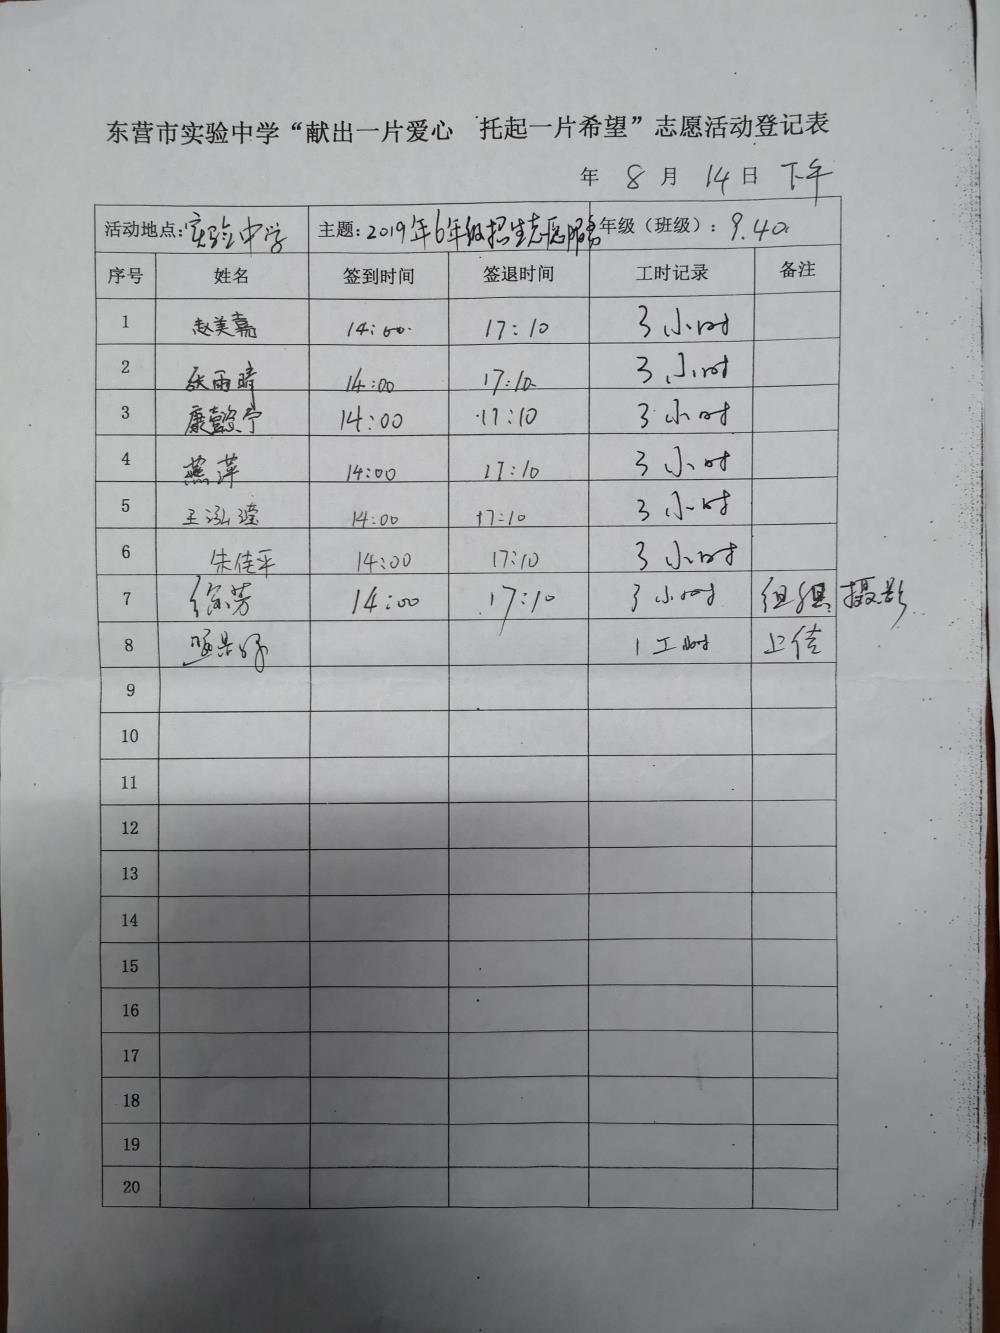 东营市实验中学“献出一片爱心 托起一片希望”志愿活动登记表
年 8 月 14 日 下午
活动地点:实验中学 主题:2019年6年级招生志愿服务 年级（班级）: 9.40
序号 姓名 签到时间 签退时间 工时记录 备注
1 赵美嘉 14:00 17:10 3小时
2 张雨晴 14:00 17:10 3小时
3 康懿宁 14:00 17:10 3小时
4 燕萍 14:00 17:10 3小时
5 王泓滢 14:00 17:10 3小时
6 朱佳平 14:00 17:10 3小时
7 徐芳 14:00 17:10 3小时 组织 摄影
8 1工时 上传
9
10
11
12
13
14
15
16
17
18
19
20